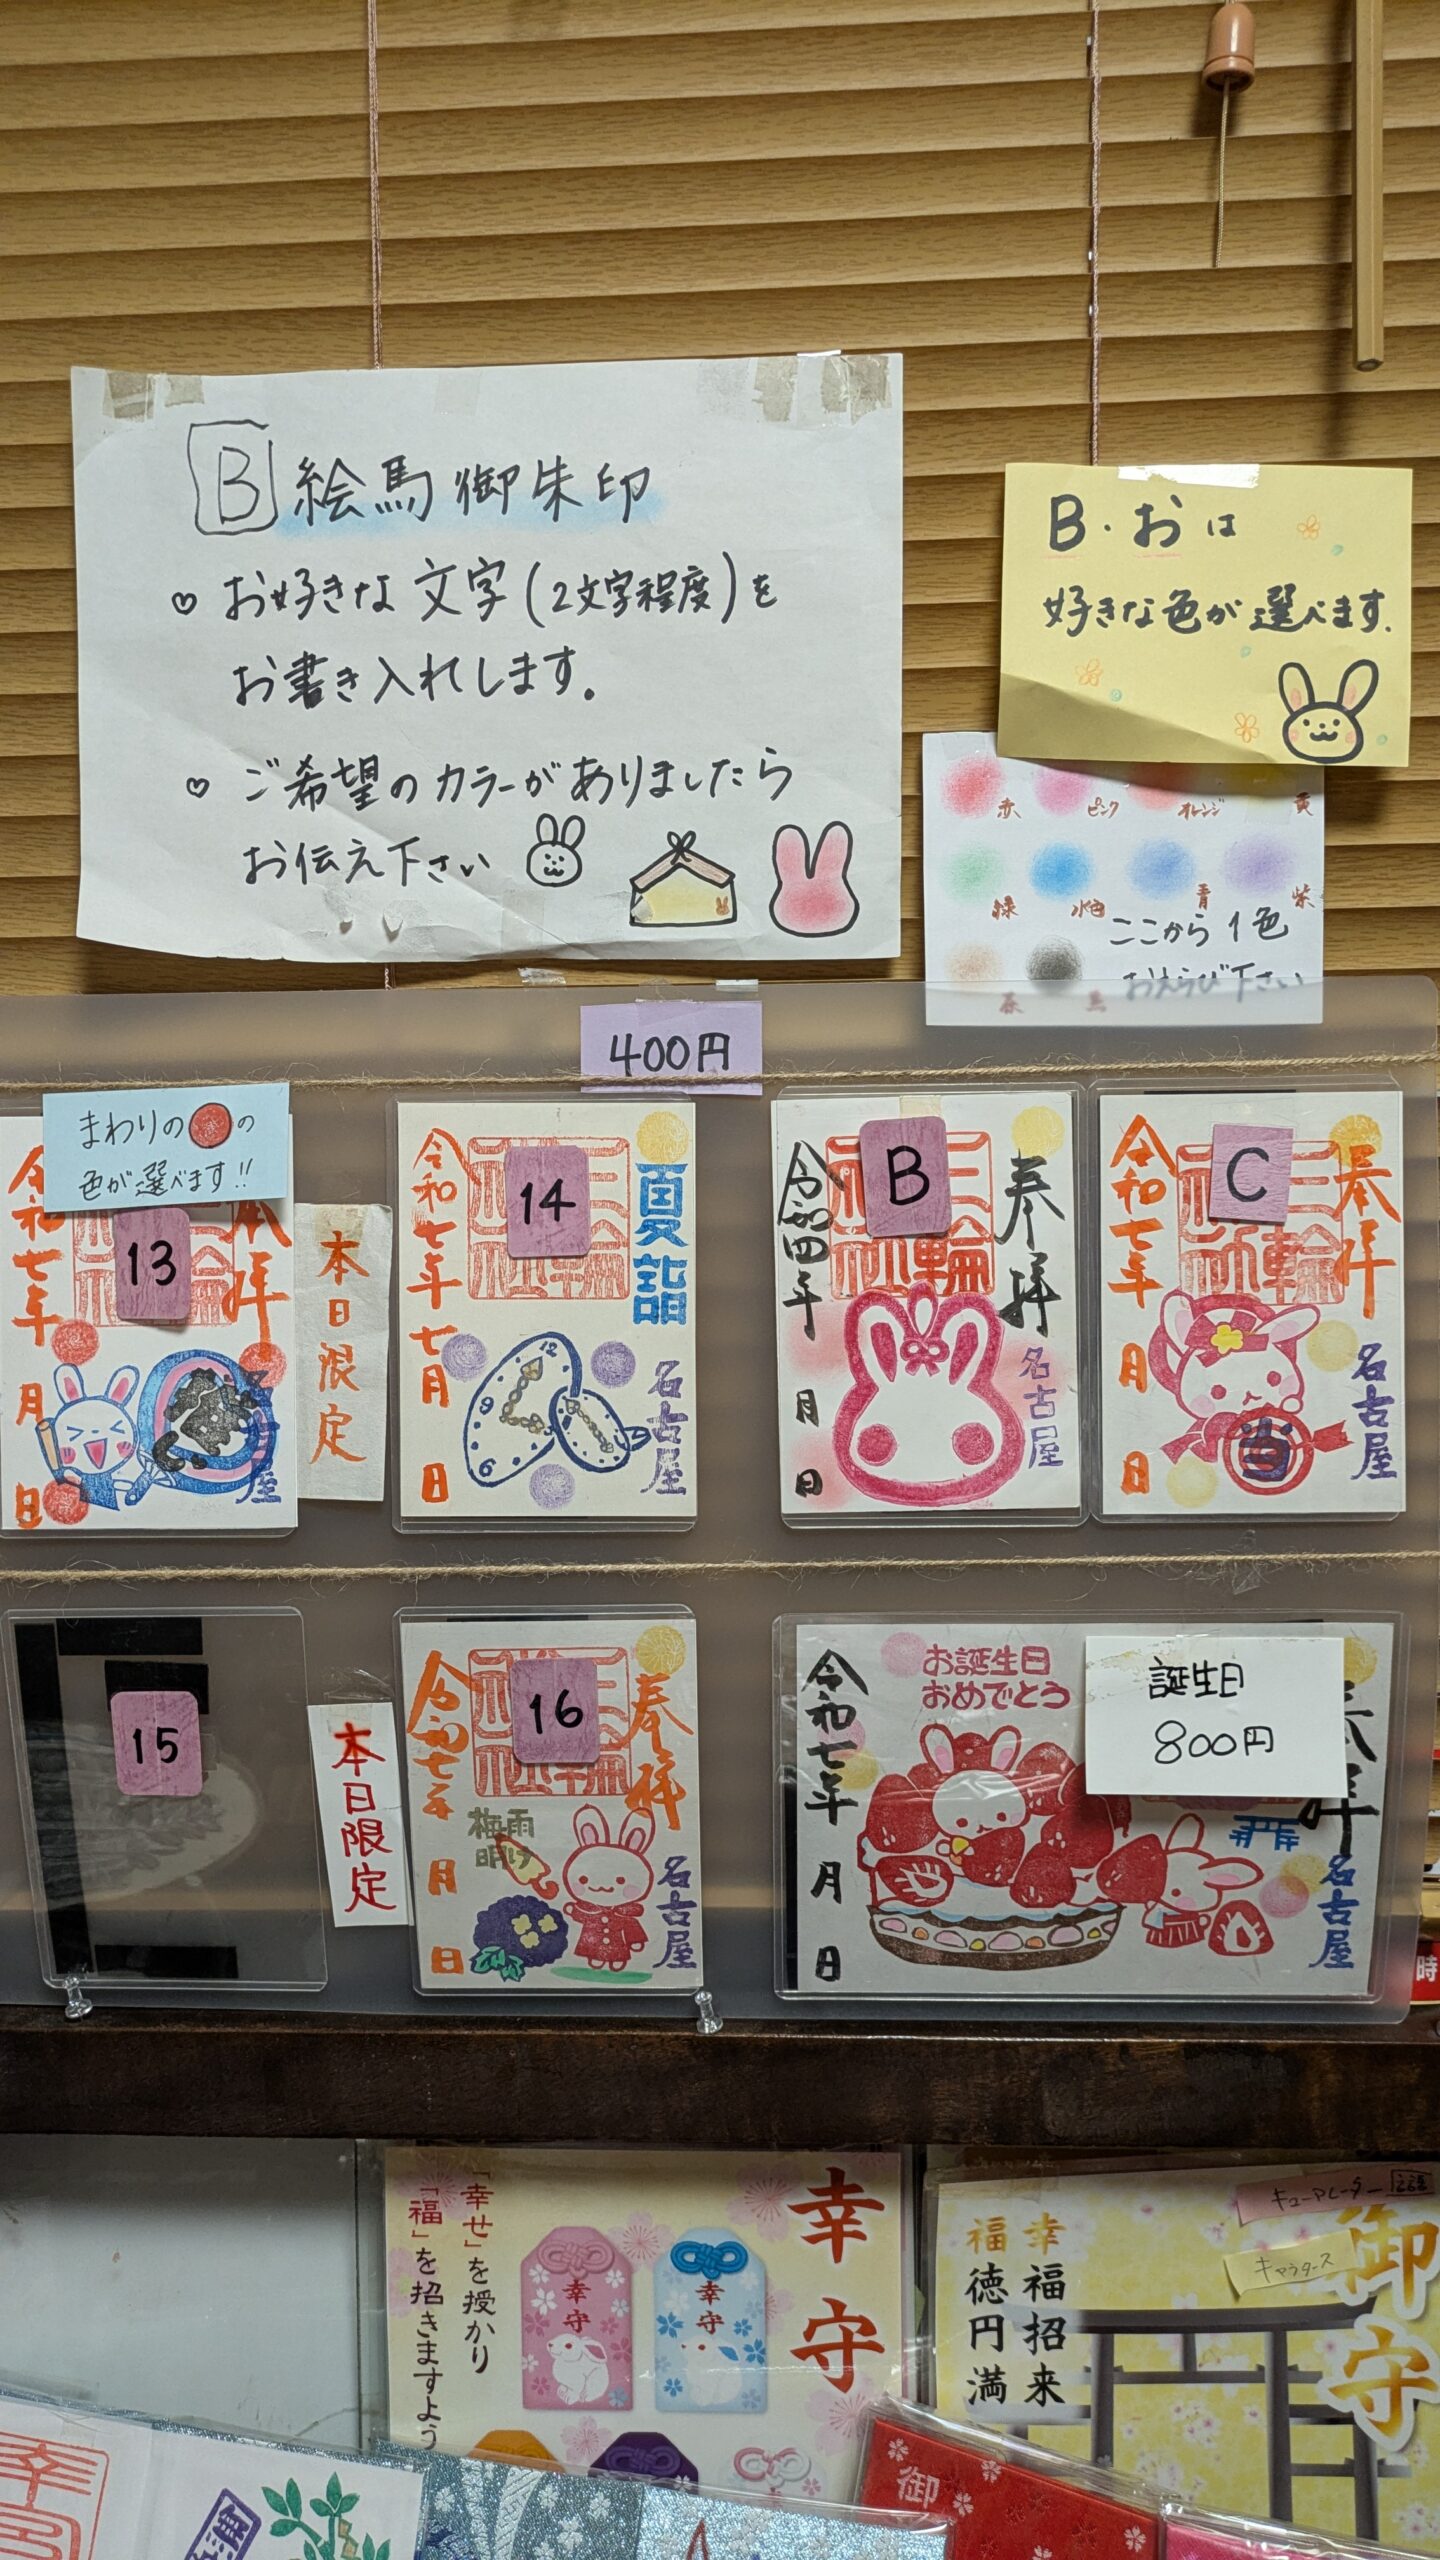 B 絵馬御朱印
♡ お好きな文字(2文字程度)を
お書き入れします。
♡ ご希望のカラーがありましたら
お伝え下さい
B・おは
好きな色が選べます.
赤 ピンク オレンジ 黄
緑 水色 青 紫
茶 黒
ここから1色
おえらび下さい
400円
まわりの●の
色が選べます!!
13
令和七年
月
日
奉拝
名古屋
本日限定
14
令和七年七月
日
夏詣
名古屋
B
三輪
令和四年
月
日
奉拝
名古屋
C
三輪
令和七年
月
日
奉拝
当
名古屋
15
本日限定
16
令和七年
月
日
奉拝
梅雨
明け
名古屋
令和七年
月
日
お誕生日
おめでとう
誕生日
800円
名古屋
時
幸守
「幸せ」を授かり
「福」を招きますよう
幸守
幸守
御守
幸福招来
福徳円満
御